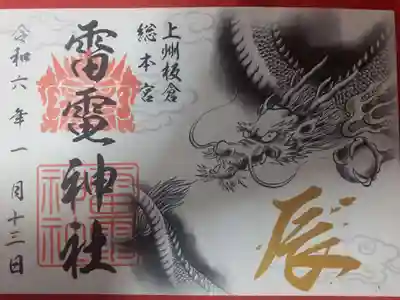 上州板倉
総本宮
雷電神社
令和六年一月十三日
辰
雷電
神社